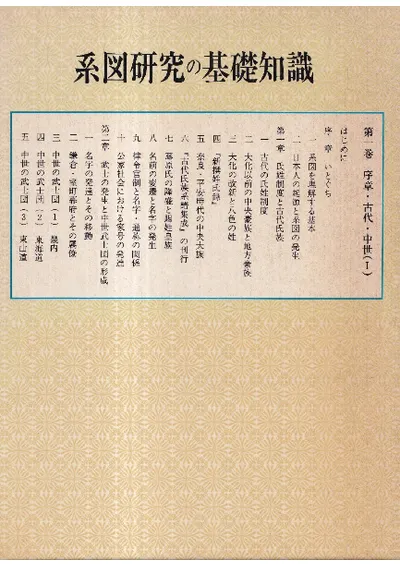 系図研究の基礎知識
第一巻 序章・古代・中世(1)
はじめに
序章 いとぐち
一 系図を理解する基本
二 日本人の起源と系図の発生
第一章 氏姓制度と古代氏族
一 古代の氏姓制度
二 大化以前の中央豪族と地方豪族
三 大化の改新と八色の姓
四 『新撰姓氏録』
五 奈良・平安時代の中央大族
六 『古代氏族系譜集成』の刊行
七 藤原氏の隆盛と賜姓皇族
八 名前の変遷と名字の発生
九 律令官制と名字・通称の関係
十 公家社会における家号の発達
第二章 武士の発生と中世武士団の形成
一 名字の発達とその移動
二 鎌倉・室町幕府とその裏像
三 中世の武士団(1) 畿内
四 中世の武士団(2) 東海道
五 中世の武士団(3) 東山道